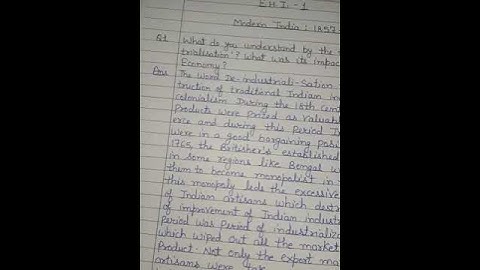 E.H.I. - 1
Modern India : 1857
Q1 What do you understand by the
trialisation'? what was its impac
Economy?
Ans The word De-industriali-Sation
truction of traditional Indian in
colonialism. During the 18th Cent
products were prized as valuabl
erce and during this period I
were in a good bargaining posi
1765, the Britisher's established
in some regions like Bengal w
them to become monopolist in
this monopoly leds the excessive
of Indian artisans which dest
of improvement of Indian indust
period was period of industrializa
which wiped out all the market
Product. Not only the export ma
artisans were